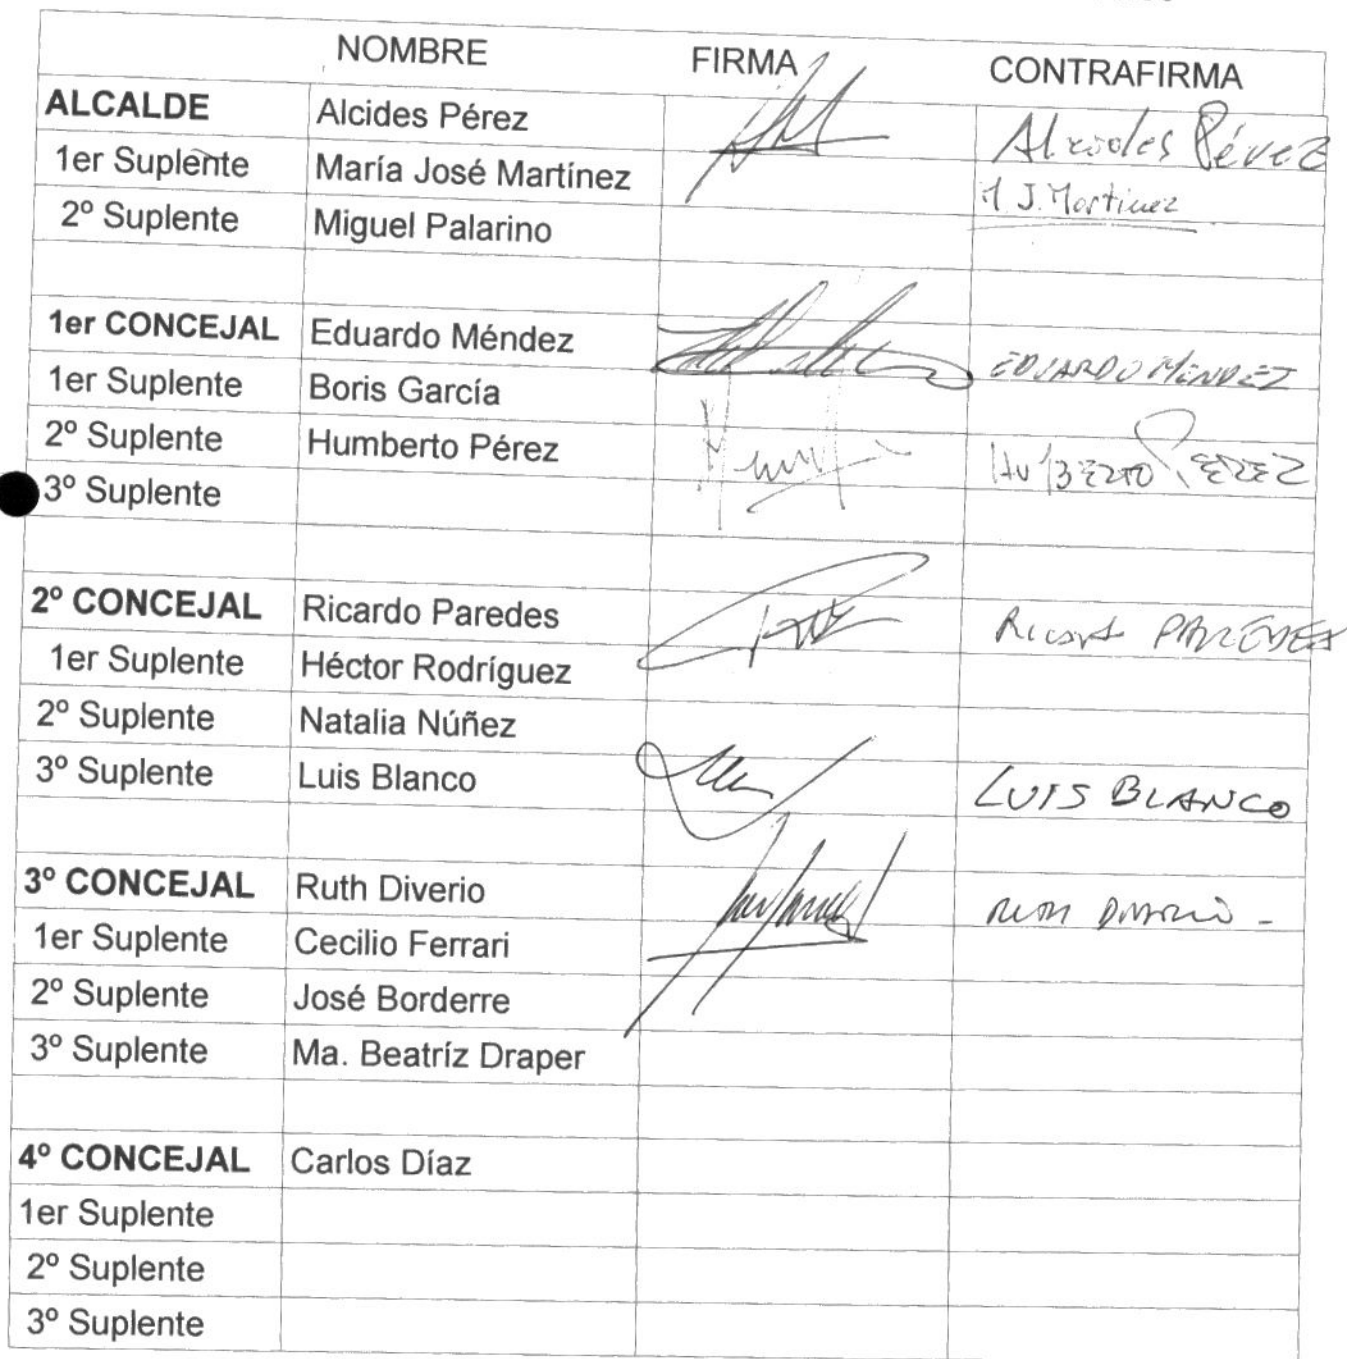 NOMBRE FIRMA CONTRAFIRMA
ALCALDE Alcides Pérez Alcides Pérez
1er Suplente María José Martínez M J. Martinez
2º Suplente Miguel Palarino
1er CONCEJAL Eduardo Méndez EDUARDO MÉNDEZ
1er Suplente Boris García
2º Suplente Humberto Pérez HUMBERTO PEREZ
3º Suplente
2º CONCEJAL Ricardo Paredes PAREDES
1er Suplente Héctor Rodríguez
2º Suplente Natalia Núñez
3º Suplente Luis Blanco LUIS BLANCO
3º CONCEJAL Ruth Diverio RUTH DIVERIO -
1er Suplente Cecilio Ferrari
2º Suplente José Borderre
3º Suplente Ma. Beatríz Draper
4º CONCEJAL Carlos Díaz
1er Suplente
2º Suplente
3º Suplente